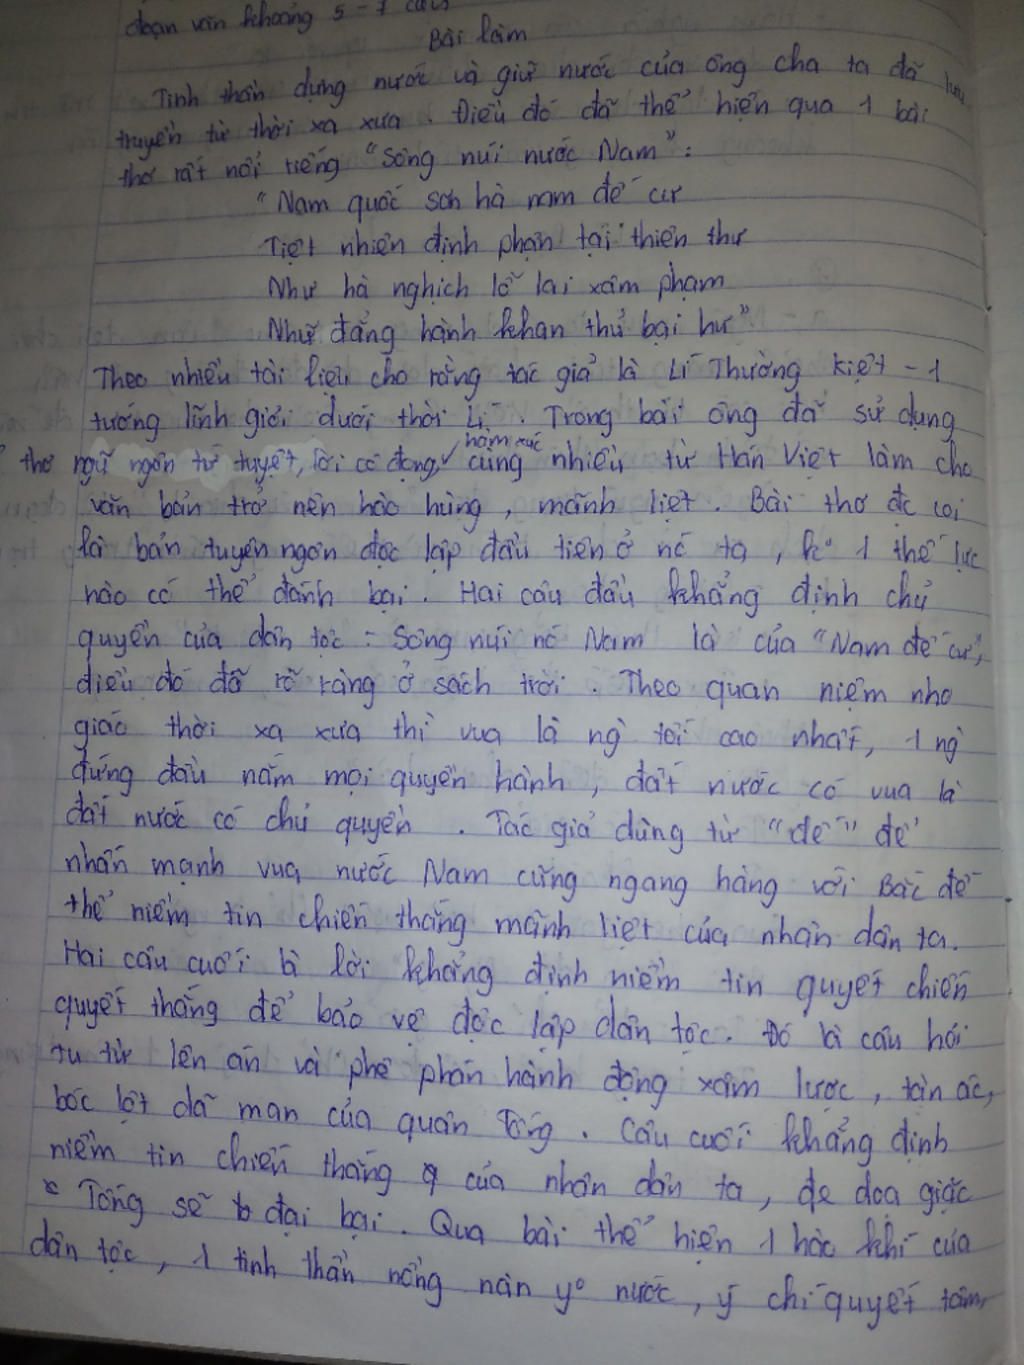 đoạn văn khoảng 5 - 7 câu
Bài làm
Tinh thần dựng nước và giữ nước của ông cha ta đã lưu
truyền từ thời xa xưa. Điều đó đã thể hiện qua 1 bài
thơ rất nổi tiếng "Sông núi nước Nam":
"Nam quốc sơn hà nam đế cư
Tiệt nhiên định phận tại thiên thư
Như hà nghịch lỗ lai xâm phạm
Nhữ đẳng hành khan thủ bại hư"
Theo nhiều tài liệu cho rằng tác giả là Lí Thường Kiệt - 1
tướng lĩnh giỏi dưới thời Lí. Trong bài ông đã sử dụng
thơ ngũ ngôn tứ tuyệt, lời cô đọng, hàm xúc cùng nhiều từ Hán Việt làm cho
văn bản trở nên hào hùng, mãnh liệt. Bài thơ đc coi
là bản tuyên ngôn độc lập đầu tiên ở nc ta, ko 1 thế lực
nào có thể đánh bại. Hai câu đầu khẳng định chủ
quyền của dân tộc: Sông núi nc Nam là của "Nam đế cư",
điều đó đã rõ ràng ở sách trời. Theo quan niệm nho
giáo thời xa xưa thì vua là ng tối cao nhất, 1 ng
đứng đầu nắm mọi quyền hành, đất nước có vua là
đất nước có chủ quyền. Tác giả dùng từ "đế" để
nhấn mạnh vua nước Nam cũng ngang hàng với Bắc đế
thể niềm tin chiến thắng mãnh liệt của nhân dân ta.
Hai câu cuối là lời khẳng định niềm tin quyết chiến
quyết thắng để bảo vệ độc lập dân tộc. Đó là câu hỏi
tu từ lên án và phê phán hành động xâm lược, tàn ác,
bóc lột dã man của quân Tống. Câu cuối khẳng định
niềm tin chiến thắng của nhân dân ta, đe doạ giặc
Tống sẽ đại bại. Qua bài thể hiện 1 hào khí của
dân tộc, 1 tinh thần nồng nàn yo nước, ý chí quyết tâm,